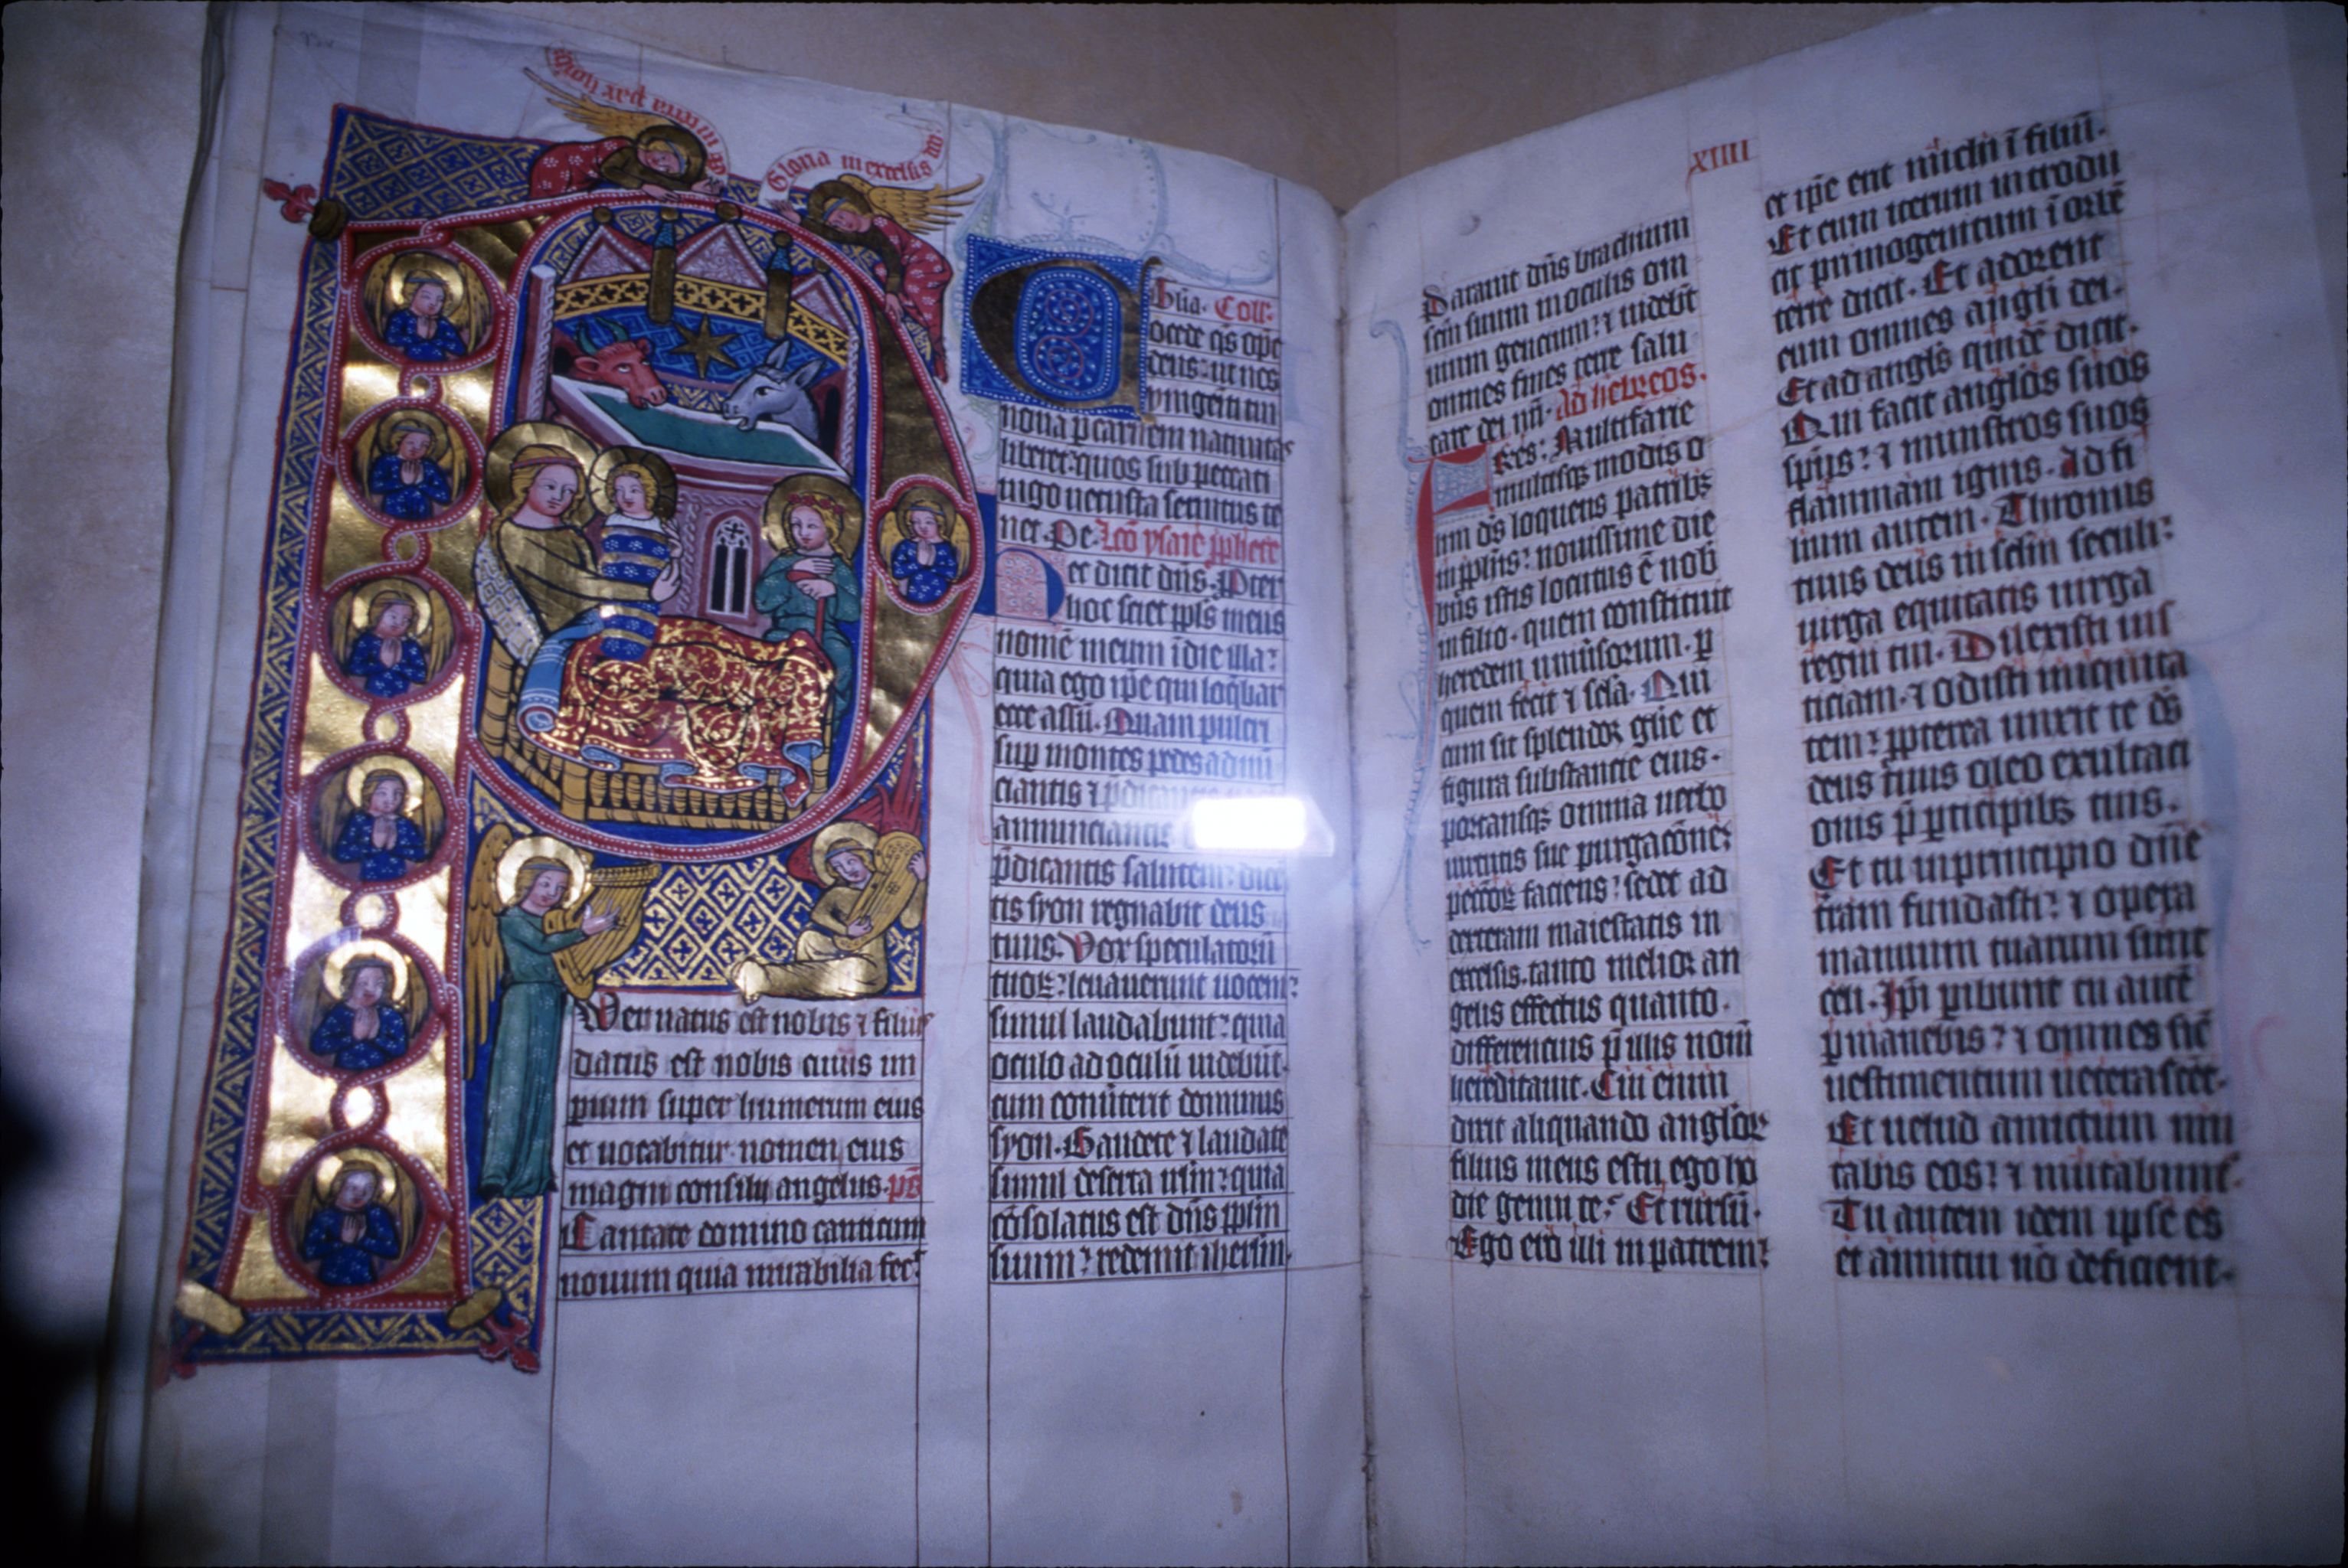 Gloria in excelsis deo
et in terra pax homi
Uer natus est nobis ⁊ filius
datus est nobis cuius im
perium super humerum eius
et uocabitur nomen eius
magni consilij angelus. ps̄
Cantate domino canticum
nouum quia mirabilia fec̄
Coll̄
ocede q̄s om̄ps
deus: ut nos
vnigeniti tui
noua p̲ carnem natiuitas
liberet: quos sub peccati
iugo uetusta seruitus te
net. Per. Lc̄o ysaie p̲p̲hete
ec dicit dn̄s. Pter
hoc sciet pp̄ls meus
nomē meum ī die illa:
quia ego ip̄e qui loq̄bar
ecce assū. Quam pulcri
sup̲ montes pedes adnū
ciantis ⁊ p̄dicantis
annunciantis
p̄dicantis salutem: dicē
tis syon regnabit deus
tuus. Vox speculatorū
tuoꝝ: leuauerunt uocem:
simul laudabunt: quia
oculo ad oculū uidebūt.
cum conūterit dominus
syon. Gaudete ⁊ laudate
simul deserta irl̄m: quia
cōsolatus est dn̄s pp̄lm
suum: redemit iherl̄m.
XIIII
Parauit dn̄s brachium
sc̄m suum in oculis om
nium gencium: ⁊ uidebt̄
omnes fines terre salu
tare dei nr̄i. Ad hebreos.
Fres: Multifarie
multisqꝫ modis o
lim ds̄ loquens patribꝫ
in p̲p̲h̄is: nouissime die
bus istis locutus ē nob̄
in filio. quem constituit
heredem uniūsorum. p̲
quem fecit ⁊ sc̄la. Qui
cum sit splendor gl̄ie et
figura substancie eius.
portansqꝫ omnia uerbo
uirtutis sue purgacōnē:
pecc̄oꝝ faciens: sedet ad
dexteram maiestatis in
excelsis. tanto melior an
gelis effectus quanto.
differentius p̄ illis nom̄
hereditauit. Cui enim
dixit aliquando anglōꝝ
filius meus es tu, ego ho
die genui te: Et rursū.
Ego ero illi in patrem:
et ip̄e erit michi ī filiū.
Et cum iterum introdu
cit primogenitum ī orbē
terre dicit. Et adorent
eum omnes angli dei.
Et ad anglōs quidē dicit.
Qui facit anglōs suos
sp̄us: ⁊ ministros suos
flammam ignis. Ad fi
lium autem. Thronus
tuus deus in sc̄lm seculi:
uirga equitatis uirga
regni tui. Dilexisti ius
ticiam. ⁊ odisti iniquita
tem: p̲p̲terea unxit te ds̄
deus tuus oleo exultaci
onis p̄ p̲ticipibꝫ tuis.
Et tu in principio dn̄e
tr̄am fundasti: ⁊ opera
manuum tuarum sunt
celi. Ip̄i p̲ibunt tu autē
p̲manebis: ⁊ omnes sic̄
uestimentum ueterascēt.
Et uelud amictum mu
tabis eos: ⁊ mutabunt̄.
Tu autem idem ipse es
et anni tui nō deficient.